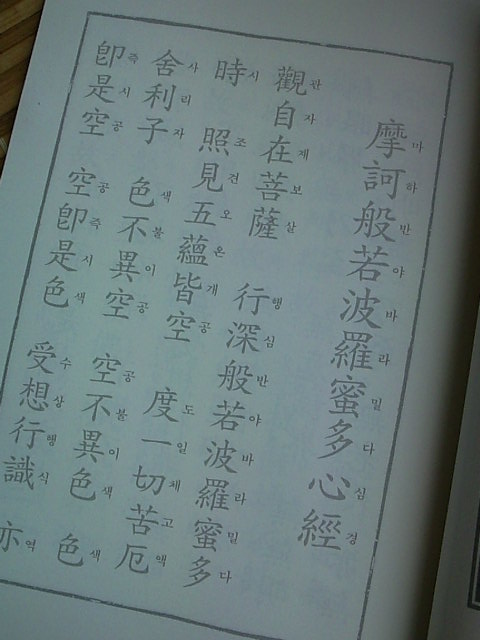 摩訶般若波羅蜜多心經
마하반야바라밀다심경
觀自在菩薩 行深般若波羅蜜多
관자제보살 행심반야바라밀다
時 照見五蘊皆空 度一切苦厄
시 조견오온개공 도일체고액
舍利子 色不異空 空不異色 色
사리자 색불이공 공불이색 색
卽是空 空卽是色 受想行識 亦
즉시공 공즉시색 수상행식 역